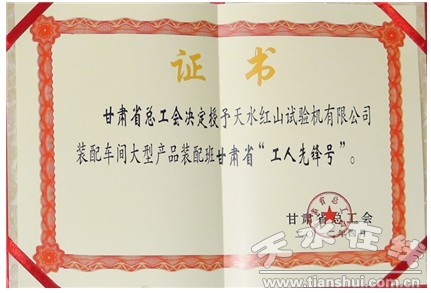 证书
甘肃省总工会决定授予天水红山试验机有限公司
装配车间大型产品装配班甘肃省“工人先锋号”。
甘肃省总工会
天水在线
www.tianshui.com.cn